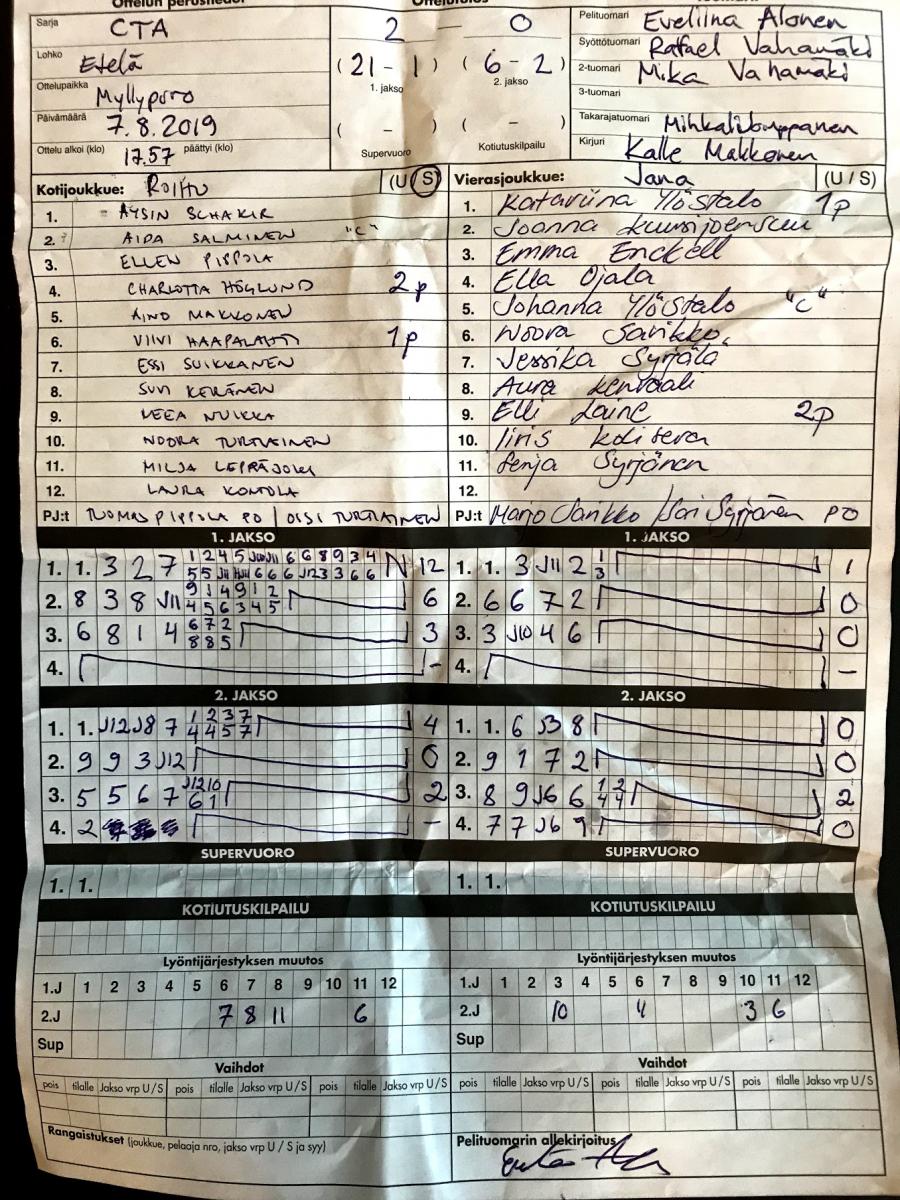 Ottelun perustiedot
Sarja CTA
Lohko Etelä
Ottelupaikka Myllypuro
Päivämäärä 7.8.2019
Ottelu alkoi (klo) 17.57 päättyi (klo)
2 — 0
(21 - 1) (6 - 2)
1. jakso 2. jakso
( - ) ( - )
Supervuoro Kotiutuskilpailu
Pelituomari Eveliina Alonen
Syöttötuomari Rafael Vahamäki
2-tuomari Mika Vahamäki
3-tuomari
Takarajatuomari
Kirjuri Kalle Makkonen
Kotijoukkue: ROIHU (U/S)
1. AYSIN SCHAKIR
2. AIDA SALMINEN "C"
3. ELLEN PIPPOLA
4. CHARLOTTA HÖGLUND 2p
5. AINO MAKKONEN
6. VIIVI HAAPALAHTI 1p
7. ESSI SUIKKANEN
8. SUVI KERÄNEN
9. VEEA NUIKKA
10. NOORA TURTIAINEN
11. MILJA LEPPÄJOKI
12. LAURA KONTOLA
PJ:t TUOMAS PIPPOLA PO / OISI TURTIAINEN
Vierasjoukkue: Jana (U / S)
1. Katariina Ylöstalo 1p
2. Joanna
3. Emma Enckell
4. Ella Ojala
5. Johanna Ylöstalo "C"
6. Noora Sarikko
7. Jessika Syrjälä
8. Aura
9. Elli Laine 2p
10. Iiris
11. Senja Syrjänen
12.
PJ:t Marjo Sarikko / Sari Syrjänen PO
1. JAKSO
1. 1. 3 2 7
12
2. 8 3 8 J11 9 1 4 9 1 2
4 5 6 3 4 5
6
3. 6 8 1 4 6 7 2
8 8 5
3
4. -
1. JAKSO
1. 1. 3 J11 2 1
3
1
2. 6 6 7 2 0
3. 3 J10 4 6 0
4. -
2. JAKSO
1. 1. J12 J8 7 1 2 3 7
4 4 5 7
4
2. 9 9 3 J12 0
3. 5 5 6 7 J12 10
6 1
2
4. 2 -
2. JAKSO
1. 1. 6 J3 8 0
2. 9 1 7 2 0
3. 8 9 J6 6 1 2
4 4
2
4. 7 7 J6 9 0
SUPERVUORO
1. 1.
SUPERVUORO
1. 1.
KOTIUTUSKILPAILU
KOTIUTUSKILPAILU
Lyöntijärjestyksen muutos
1.J 1 2 3 4 5 6 7 8 9 10 11 12
2.J 7 8 11 6
Sup
Lyöntijärjestyksen muutos
1.J 1 2 3 4 5 6 7 8 9 10 11 12
2.J 10 4 3 6
Sup
Vaihdot
pois tilalle Jakso vrp U / S pois tilalle Jakso vrp U / S pois tilalle Jakso vrp U / S
Vaihdot
pois tilalle Jakso vrp U / S pois tilalle Jakso vrp U / S pois tilalle Jakso vrp U / S
Rangaistukset (joukkue, pelaaja nro, jakso vrp U / S ja syy)
Pelituomarin allekirjoitus